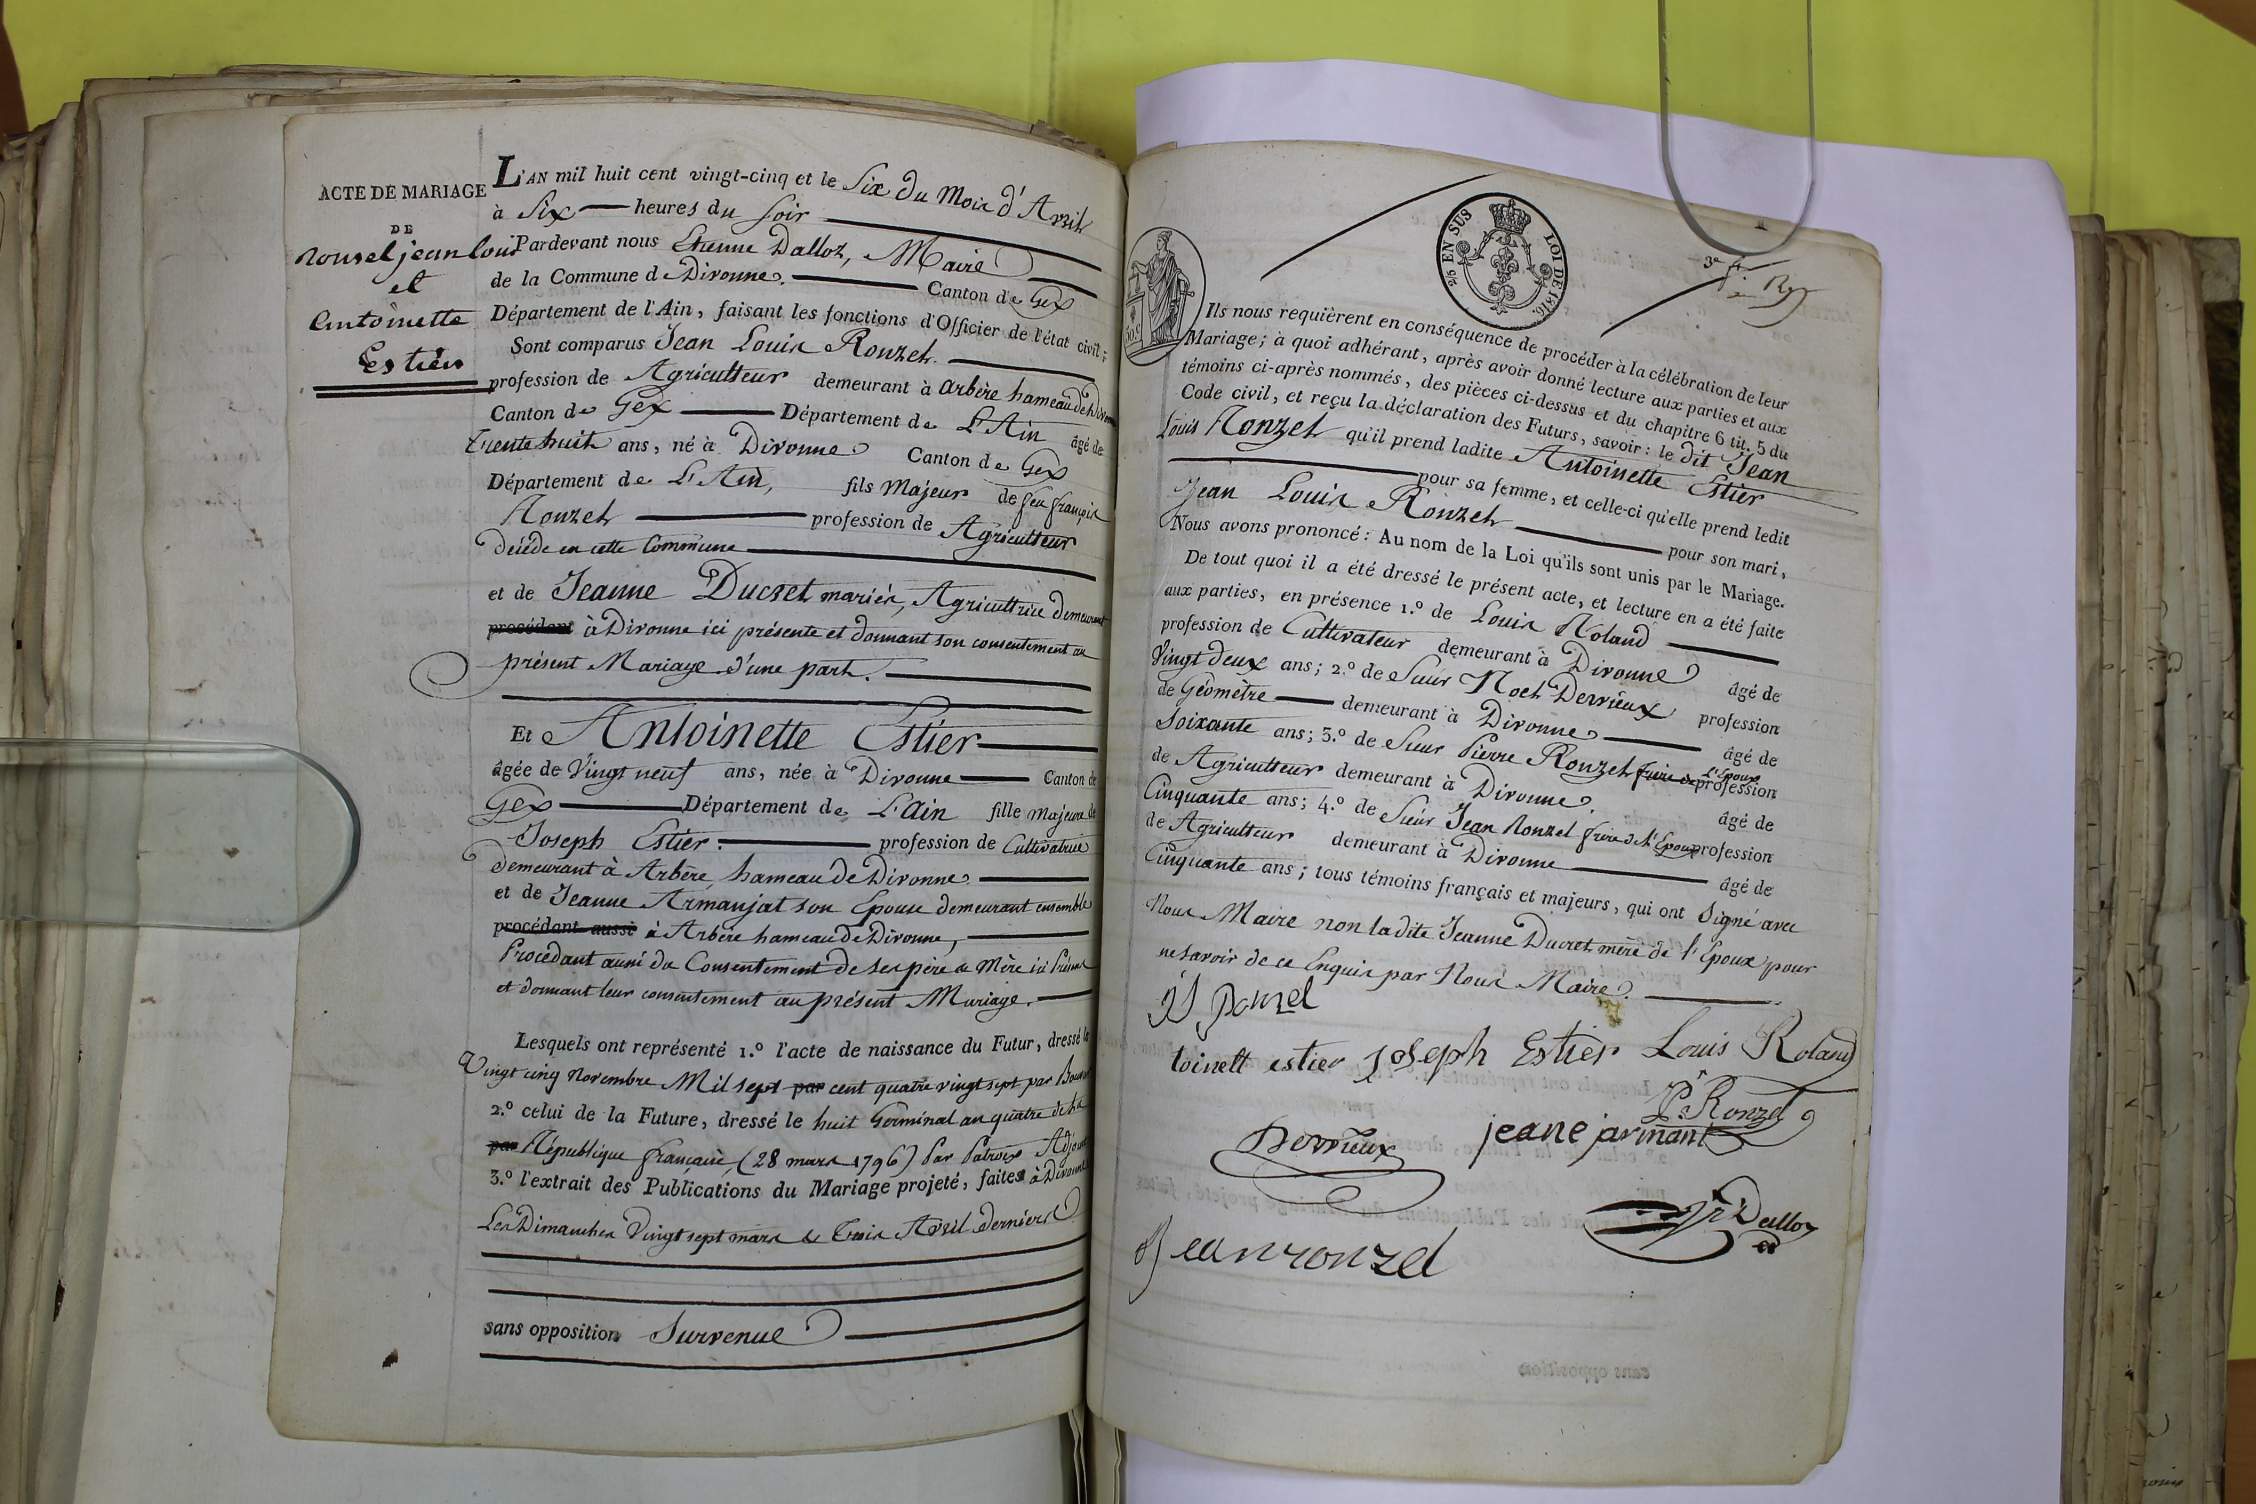 ACTE DE MARIAGE
DE
Ronzel jean louis
et
Antoinette
Estier
L'AN mil huit cent vingt-cinq et le Six du Mois d'Avril
à Six heures du soir
Pardevant nous Etienne Dalloz, Maire
de la Commune de Divonne. Canton de Gex
Département de l'Ain, faisant les fonctions d'Officier de l'état civil;
Sont comparus Jean Louis Ronzel.
profession de Agriculteur demeurant à Arbère hameau de Divonne
Canton de Gex Département de L'Ain âgé de
Trente huit ans, né à Divonne Canton de Gex
Département de L'Ain, fils Majeur de feu françois
Ronzel profession de Agriculteur
décédé en cette Commune
et de Jeanne Ducret mariés, Agricultrice demeurant
procédant à Divonne ici présente et donnant son consentement au
présent Mariage d'une part.
Et Antoinette Estier
âgée de Vingt neuf ans, née à Divonne Canton de
Gex Département de L'Ain fille Majeure de
Joseph Estier. profession de Cultivatrice
demeurant à Arbère, hameau de Divonne.
et de Jeanne Armanjat son Epouse demeurant ensemble
procédant aussi à Arbère hameau de Divonne,
Procédant aussi du Consentement de ses père & Mère ici Présens
et donnant leur consentement au présent Mariage.
Lesquels ont représenté 1.º l'acte de naissance du Futur, dressé le
Vingt cinq Novembre Mil sept par cent quatre vingt sept par
2.º celui de la Future, dressé le huit Germinal an quatre de la
par République française, (28 mars 1796) Par Patroix Adjoint
3.º l'extrait des Publications du Mariage projeté, faites à Divonne
Les Dimanches Vingt sept mars & Trois Avril derniers
sans opposition Survenue
2/5 EN SUS
LOI DE 1816.
Ils nous requièrent en conséquence de procéder à la célébration de leur
Mariage; à quoi adhérant, après avoir donné lecture aux parties et aux
témoins ci-après nommés, des pièces ci-dessus et du chapitre 6 tit. 5 du
Code civil, et reçu la déclaration des Futurs, savoir: le dit Jean
Louis Ronzel qu'il prend ladite Antoinette Estier
pour sa femme, et celle-ci qu'elle prend ledit
Jean Louis Ronzel pour son mari,
Nous avons prononcé: Au nom de la Loi qu'ils sont unis par le Mariage.
De tout quoi il a été dressé le présent acte, et lecture en a été faite
aux parties, en présence 1.º de Louis Roland
profession de Cultivateur demeurant à Divonne âgé de
Vingt deux ans; 2.º de Sieur Noel Derrieux profession
de Géomètre demeurant à Divonne âgé de
Soixante ans; 3.º de Sieur Pierre Ronzel frère de L'Epoux profession
de Agriculteur demeurant à Divonne. âgé de
Cinquante ans; 4.º de Sieur Jean Ronzel frère de l'Epoux profession
de Agriculteur demeurant à Divonne âgé de
Cinquante ans; tous témoins français et majeurs, qui ont Signé avec
Nous Maire non la dite Jeanne Ducret mère de l'Epoux pour
ne savoir de ce Enquis par Nous Maire.
Ronzel
toinett estier Joseph Estier Louis Roland
Pre Ronzel
Derrieux jeane jarmant
Dalloz
Jean ronzel
sans opposition